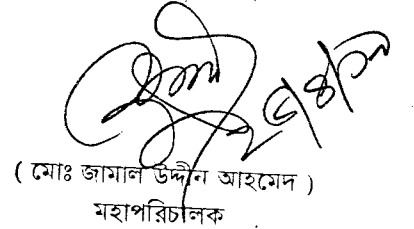 ( মোঃ জামাল উদ্দীন আহমেদ )
মহাপরিচালক